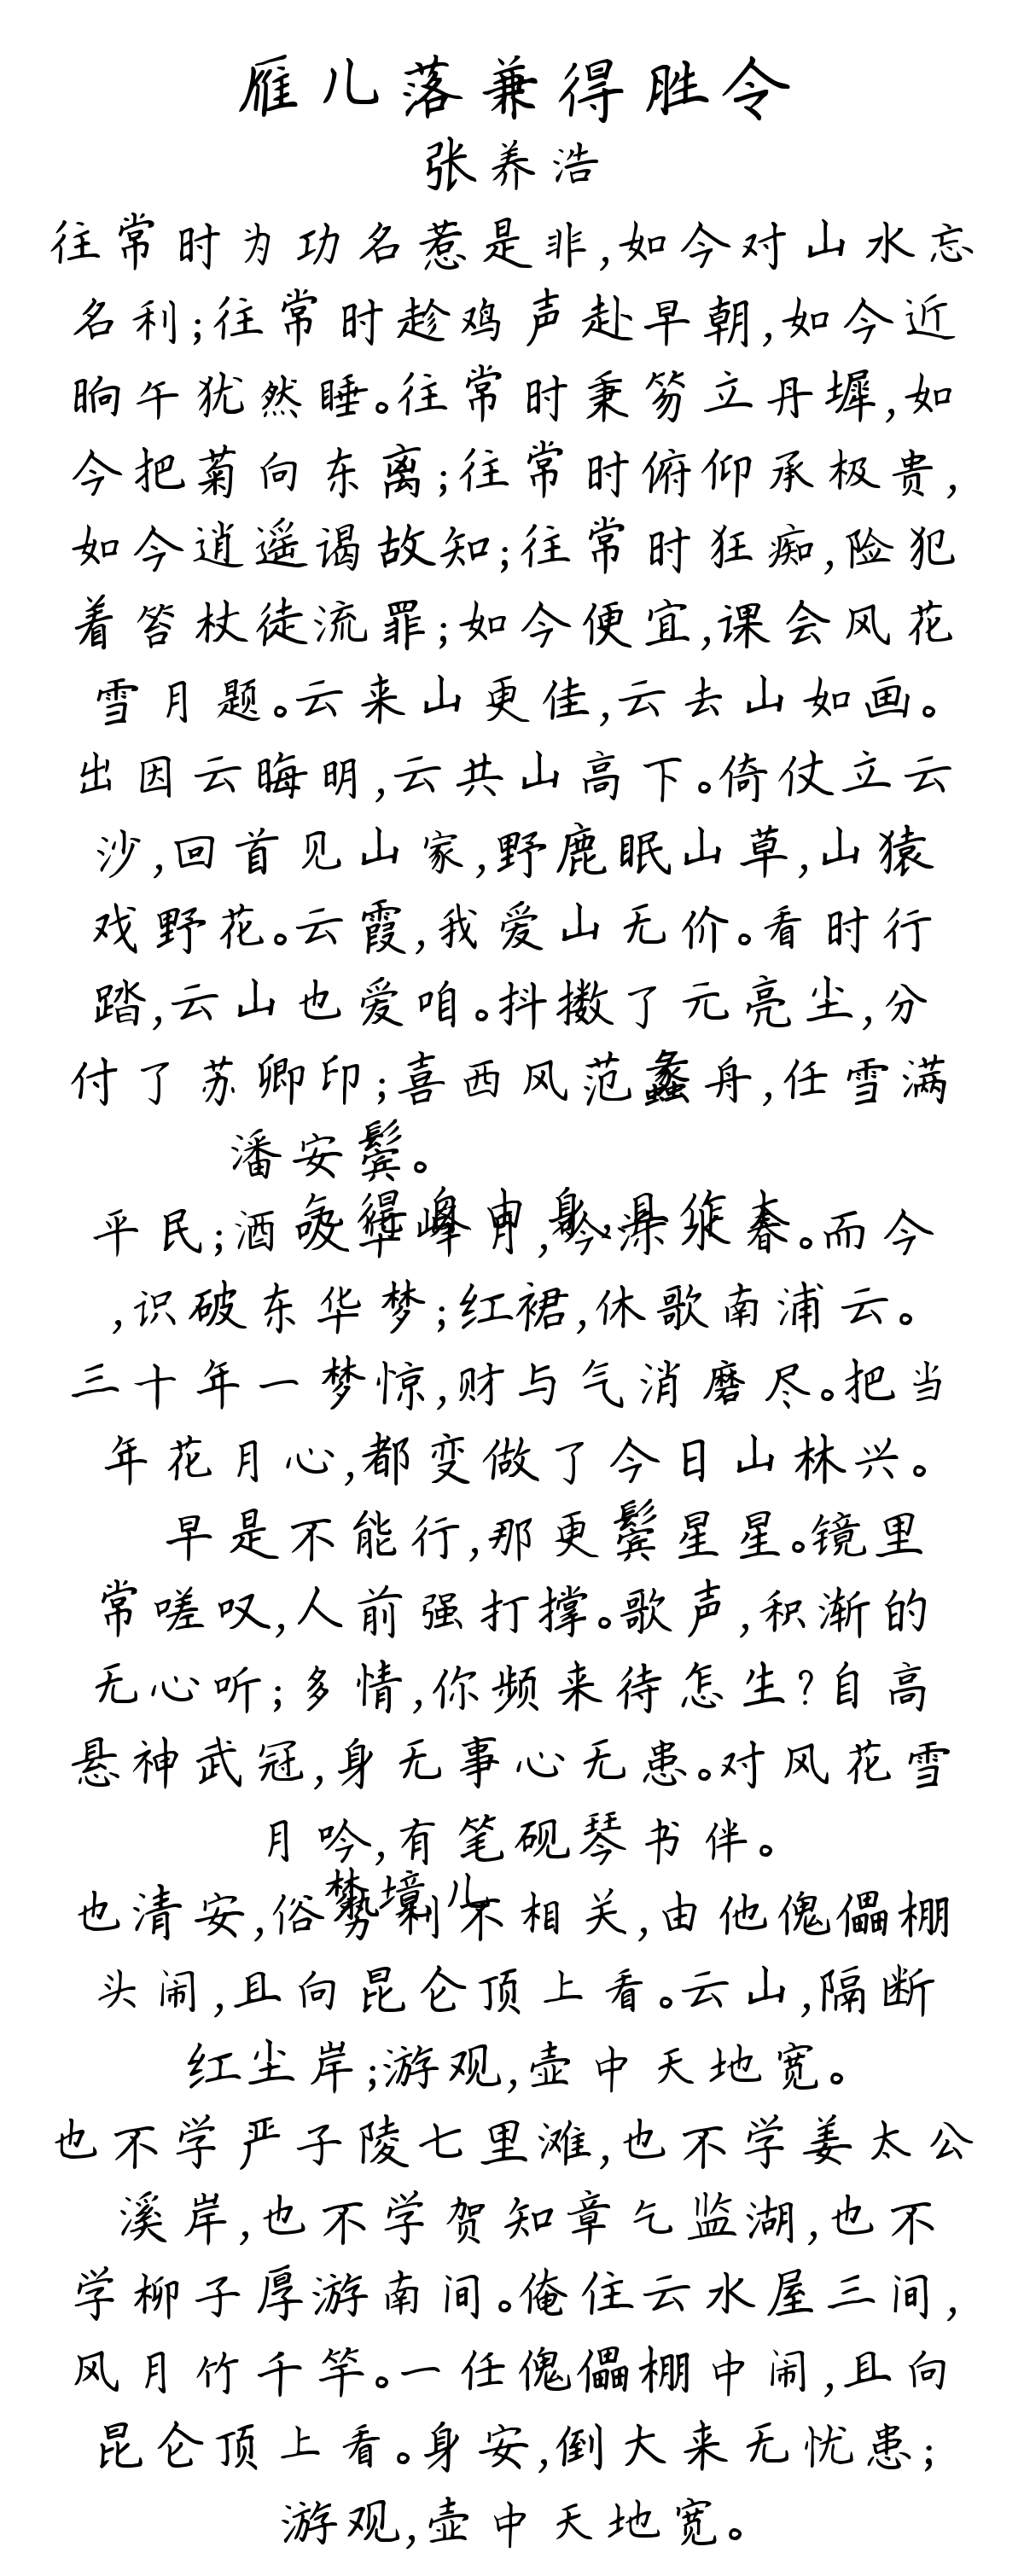 雁儿落兼得胜令
张养浩
往常时为功名惹是非,如今对山水忘
名利;往常时趁鸡声赴早朝,如今近
晌午犹然睡。往常时秉笏立丹墀,如
今把菊向东离;往常时俯仰承极贵,
如今逍遥谒故知;往常时狂痴,险犯
着笞杖徒流罪;如今便宜,课会风花
雪月题。云来山更佳,云去山如画。
出因云晦明,云共山高下。倚仗立云
沙,回首见山家,野鹿眠山草,山猿
戏野花。云霞,我爱山无价。看时行
踏,云山也爱咱。抖擞了元亮尘,分
付了苏卿印;喜西风范蠡舟,任雪满
潘安鬓。
乞得自由身,且作太
平民;酒吸华峰月,吟深乐春。而今
,识破东华梦;红裙,休歌南浦云。
三十年一梦惊,财与气消磨尽。把当
年花月心,都变做了今日山林兴。
早是不能行,那更鬓星星。镜里
常嗟叹,人前强打撑。歌声,积渐的
无心听;多情,你频来待怎生?自高
悬神武冠,身无事心无患。对风花雪
月吟,有笔砚琴书伴。
梦境儿
也清安,俗势利不相关,由他傀儡棚
头闹,且向昆仑顶上看。云山,隔断
红尘岸;游观,壶中天地宽。
也不学严子陵七里滩,也不学姜太公
溪岸,也不学贺知章乞监湖,也不
学柳子厚游南间。俺住云水屋三间,
风月竹千竿。一任傀儡棚中闹,且向
昆仑顶上看。身安,倒大来无忧患;
游观,壶中天地宽。